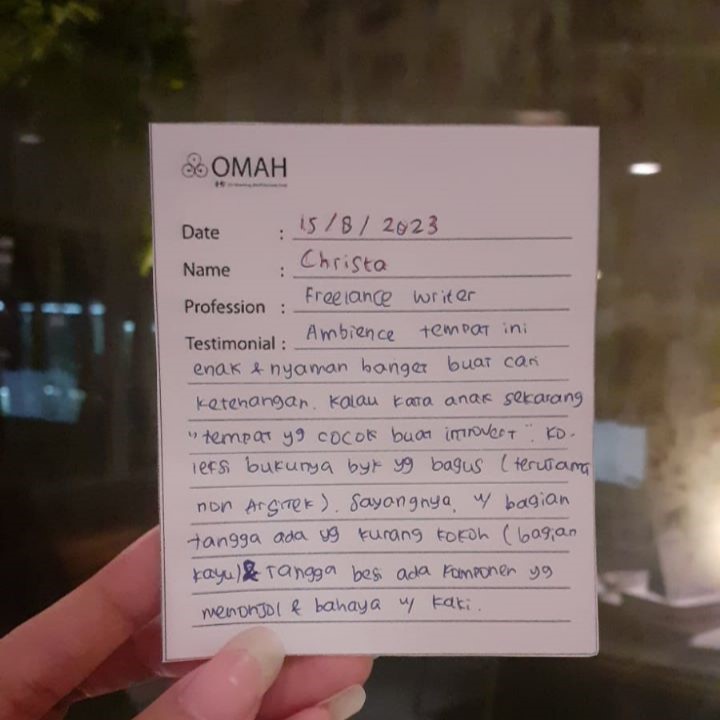 OMAH
Date : 15/8/2023
Name : Christa
Profession : Freelance writer
Testimonial : Ambience tempat ini
enak & nyaman banget buat cari
ketenangan. Kalau kata anak sekarang
"tempat yg cocok buat introvert". Ko-
leksi bukunya byk yg bagus (terutama
non Arsitek). Sayangnya, u/ bagian
tangga ada yg kurang kokoh (bagian
kayu) & tangga besi ada komponen yg
menonjol & bahaya u/ kaki.